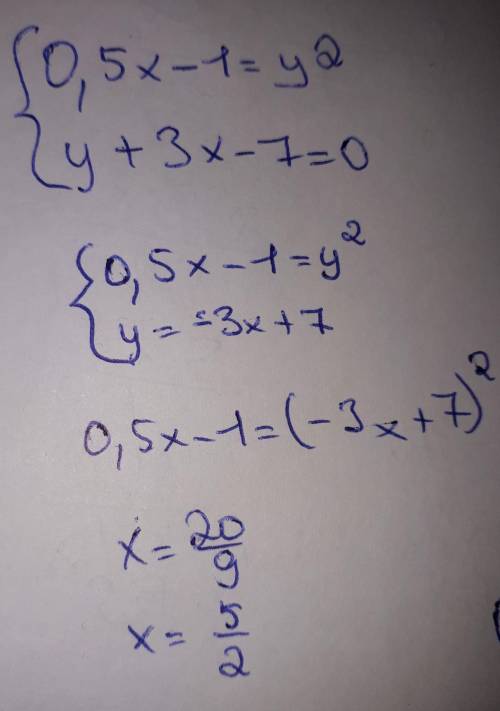 0,5x-1=y²
y+3x-7=0
0,5x-1=y²
y=-3x+7
0,5x-1=(-3x+7)²
x=20/9
x=5/2